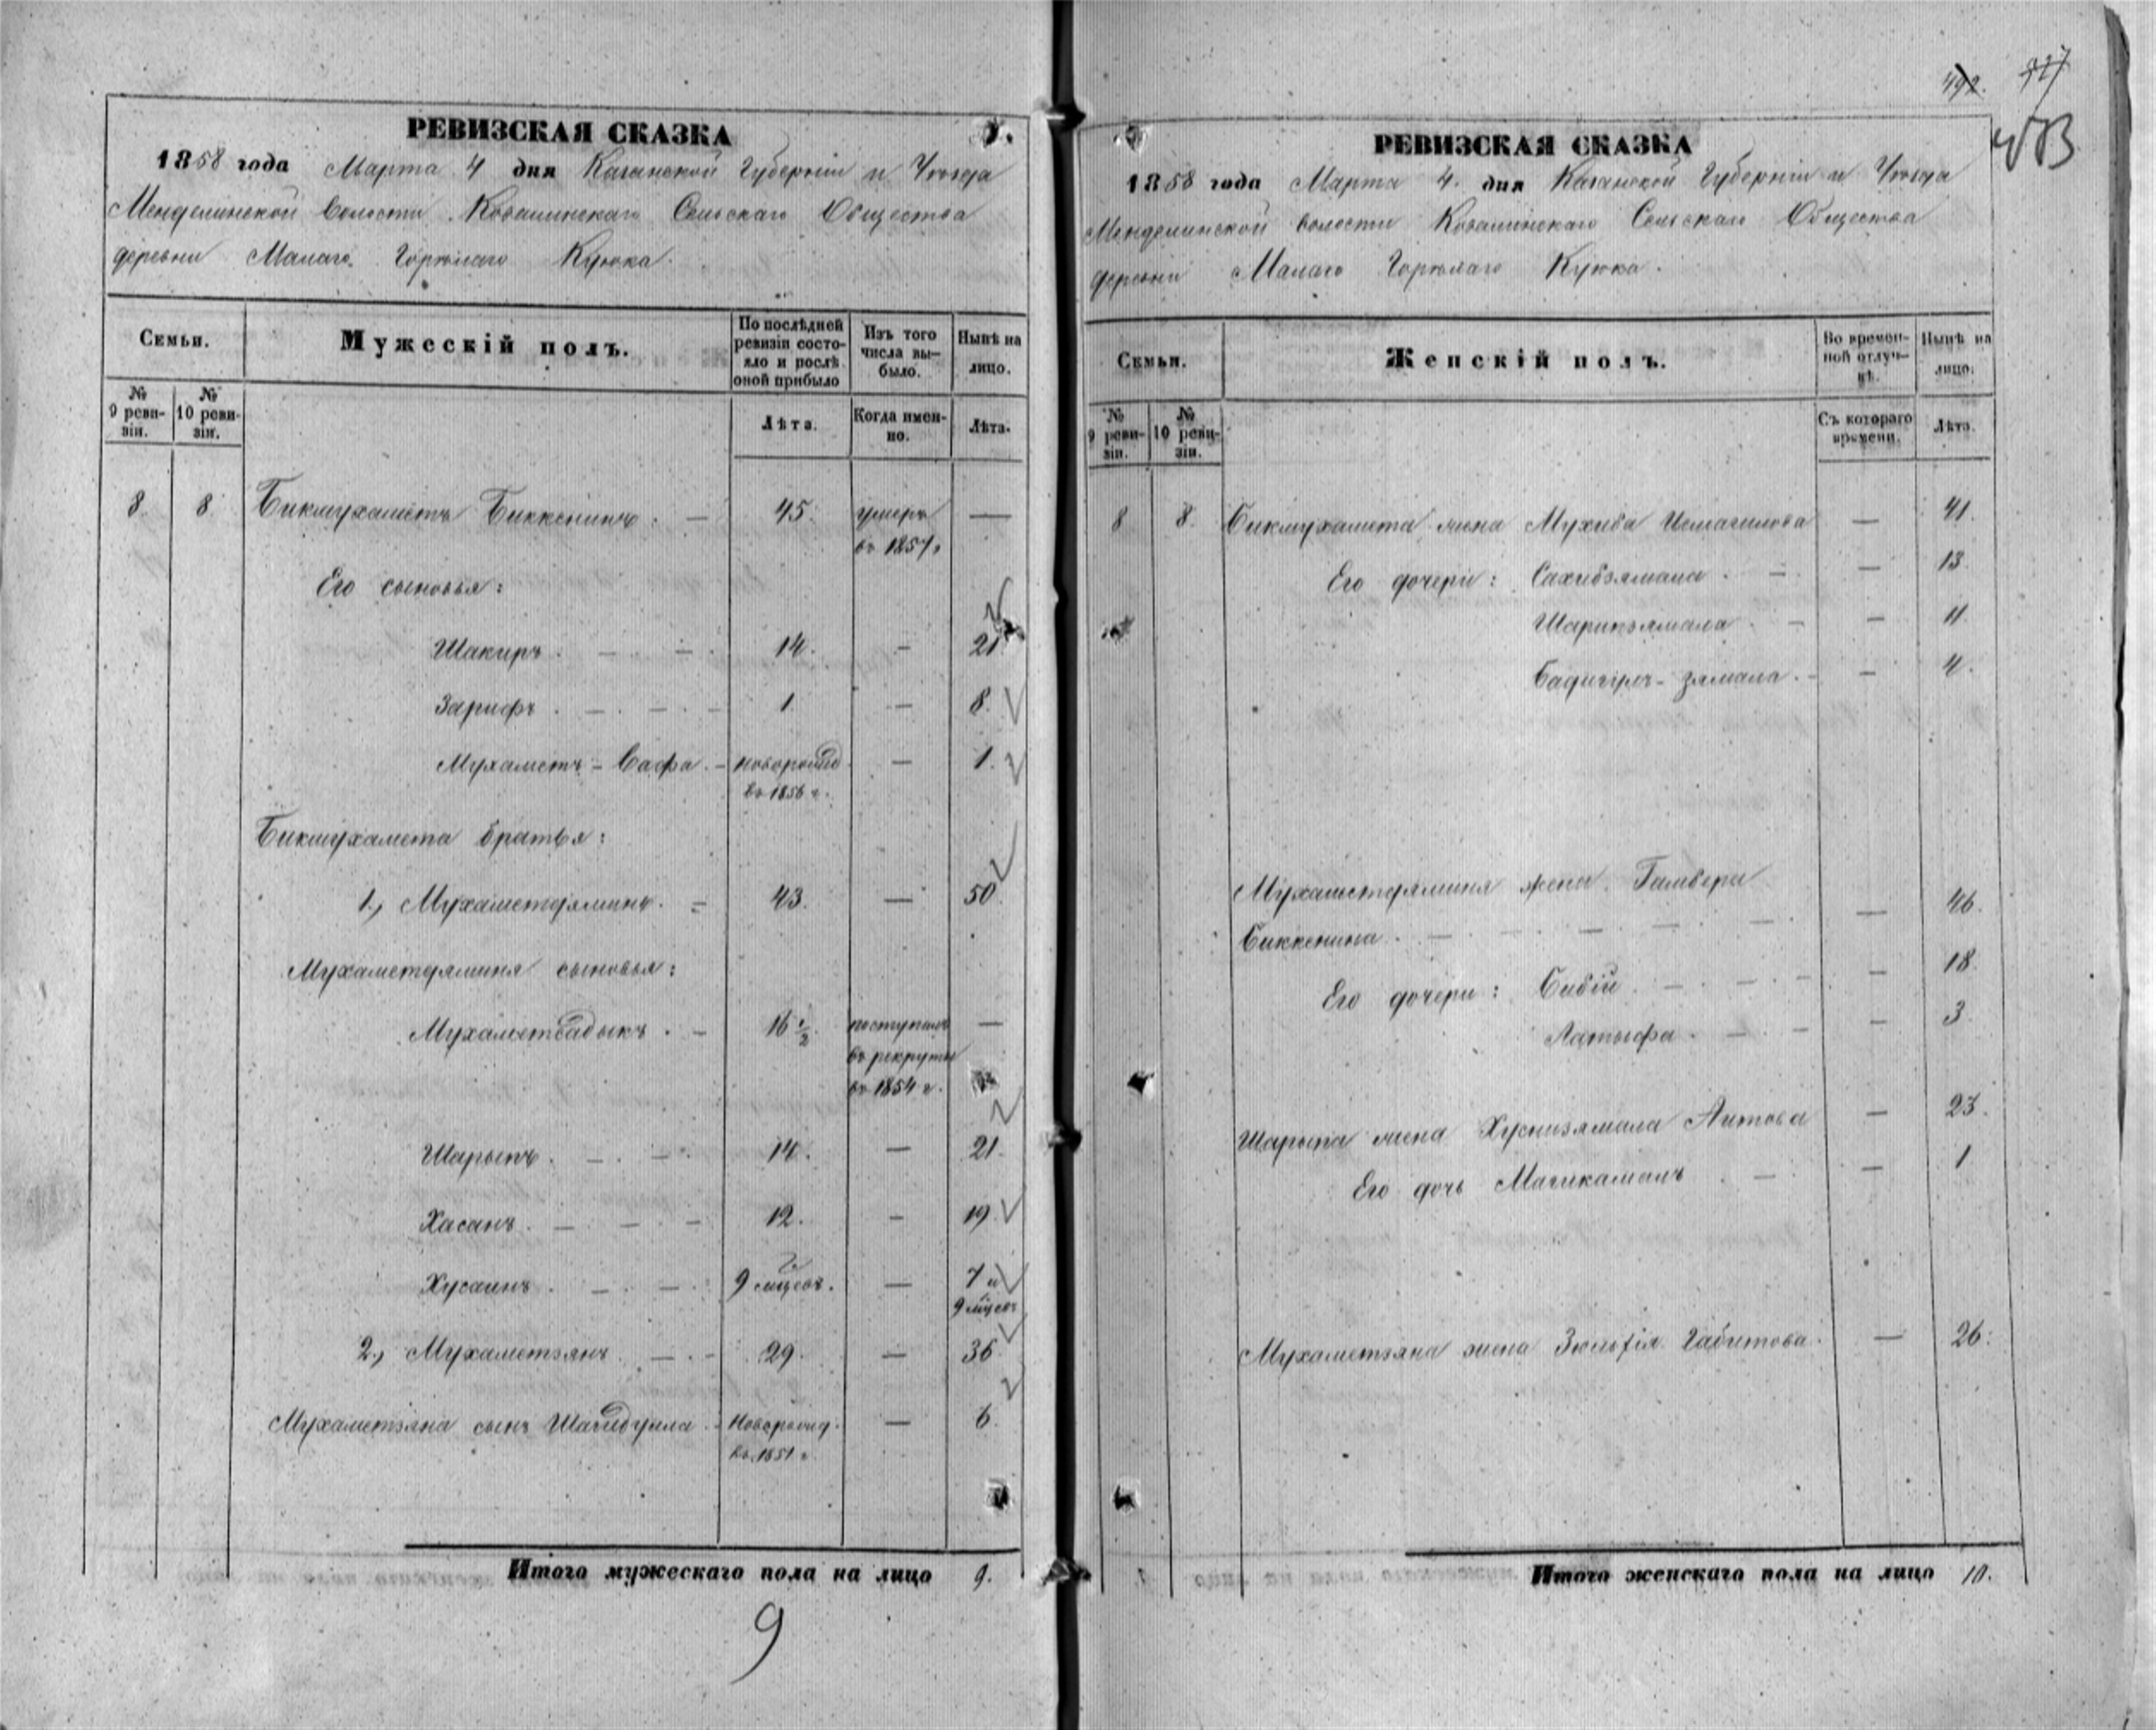 РЕВИЗСКАЯ СКАЗКА
1858 года Марта 4 дня Казанской Губерніи и Уѣзда
Менделинской Волости Ковалинскаго Сельскаго Общества
деревни Малаго Горѣлаго Куюка.
Семьи.
Мужескій полъ.
По послѣдней ревизіи состояло и послѣ оной прибыло
Изъ того числа вы-было.
Нынѣ на лицо.
№ 9 реви-зіи.
№ 10 реви-зіи.
Лѣта.
Когда имен-но.
Лѣта.
8. 8. Бикмухаметъ Биккенинъ. — 45. умеръ —
въ 1857 г
Его сыновья:
Шакиръ. — 14. — 21.
Зарифъ. — 1 — 8.
Мухаметъ-Сафа. — новорожд — 1.
въ 1856 г.
Бикмухамета братья:
1., Мухаметдяминъ. = 43. — 50.
Мухаметдяминя сыновья:
Мухаметсадыкъ. — 16 1/2. поступилъ —
въ рекруты
въ 1854 г.
Шарыпъ. — 14. — 21.
Хасанъ. — 12. — 19.
Хусаинъ. — 9 мцевъ. — 7 и
9 мцевъ
2., Мухаметзянъ — 29. — 36.
Мухаметзяна сынъ Шагидулла. — новорожд. — 6.
въ 1851 г
Итого мужескаго пола на лицо 9.
9
492.
РЕВИЗСКАЯ СКАЗКА
1858 года Марта 4. дня Казанской Губерніи и Уѣзда
Менделинской волости Ковалинскаго Сельскаго Общества
деревни Малаго Горѣлаго Куюка.
Семьи.
Женскій полъ.
Во времен-ной отлуч-кѣ.
Нынѣ на лицо.
№ 9 реви-зіи.
№ 10 реви-зіи.
Съ котораго времени.
Лѣта.
8 8. Бикмухамета жена Мухиба Исмагилова — 41.
Его дочери: Сахибзямала. — — 13.
Шарипзямала. — — 11.
— 4.
Мухаметдяминя жена
Биккенина. — — 46.
Его дочери: Бибій. — — 18.
Латыфа. — — 3.
Шарыпа жена Хуснизямала Аитова — 23.
Его дочь Магикамалъ. — — 1
Мухаметзяна жена Зюльфія Габитова. — 26.
Итого женскаго пола на лицо 10.